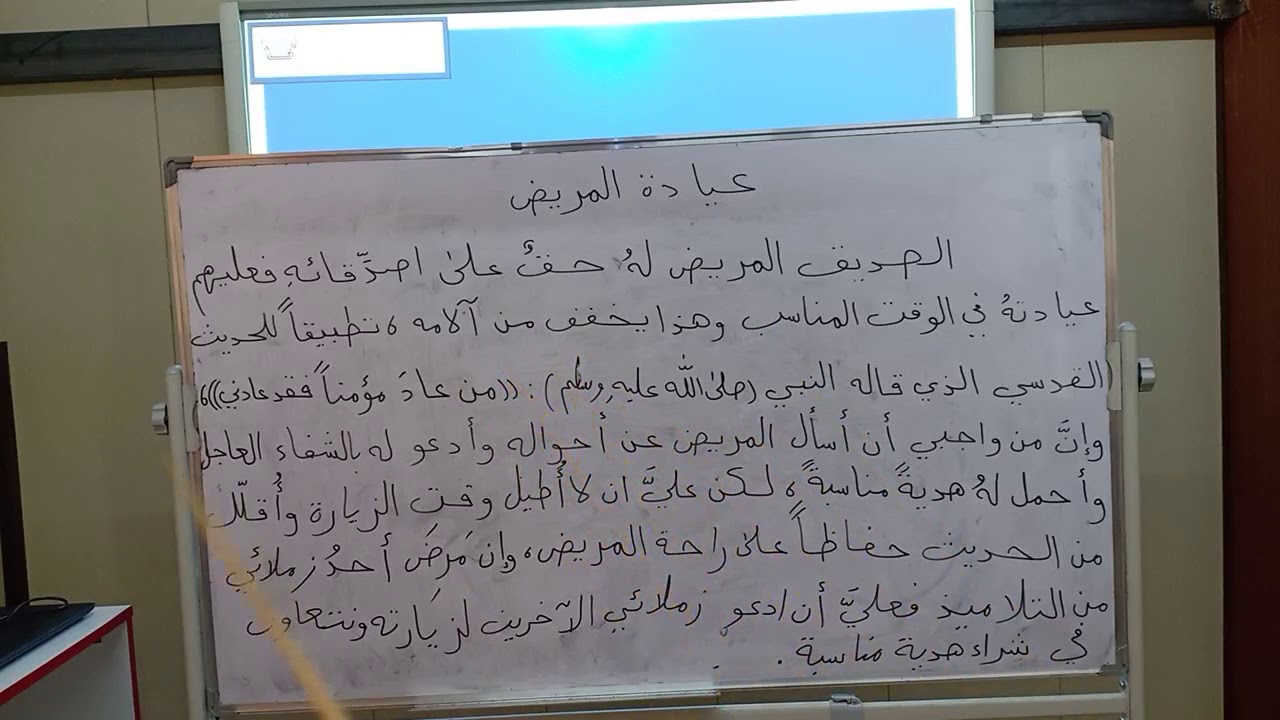 عيادة المريض
الصديق المريض لهُ حقٌ على اصدِّقائهِ فعليهم
عيادتهُ في الوقت المناسب وهذا يخفف من آلامه ، تطبيقاً للحديث
القدسي الذي قاله النبي (صلى الله عليه وسلم) : ((من عادَ مؤمناً فقد عادني)) ،
وإنَّ من واجبي أن أسأل المريض عن أحواله وأدعو له بالشفاء العاجل
وأحمل لهُ هديةً مناسبةً ، لكن عليَّ ان لا أُطيل وقت الزيارة وأُقلّل
من الحديث حفاظاً على راحة المريض ، وإن مَرضَ أحدُ زملائي
من التلاميذ فعليَّ أن ادعو زملائي الآخرين لزيارته ونتعاون
في شراء هدية مناسبة .